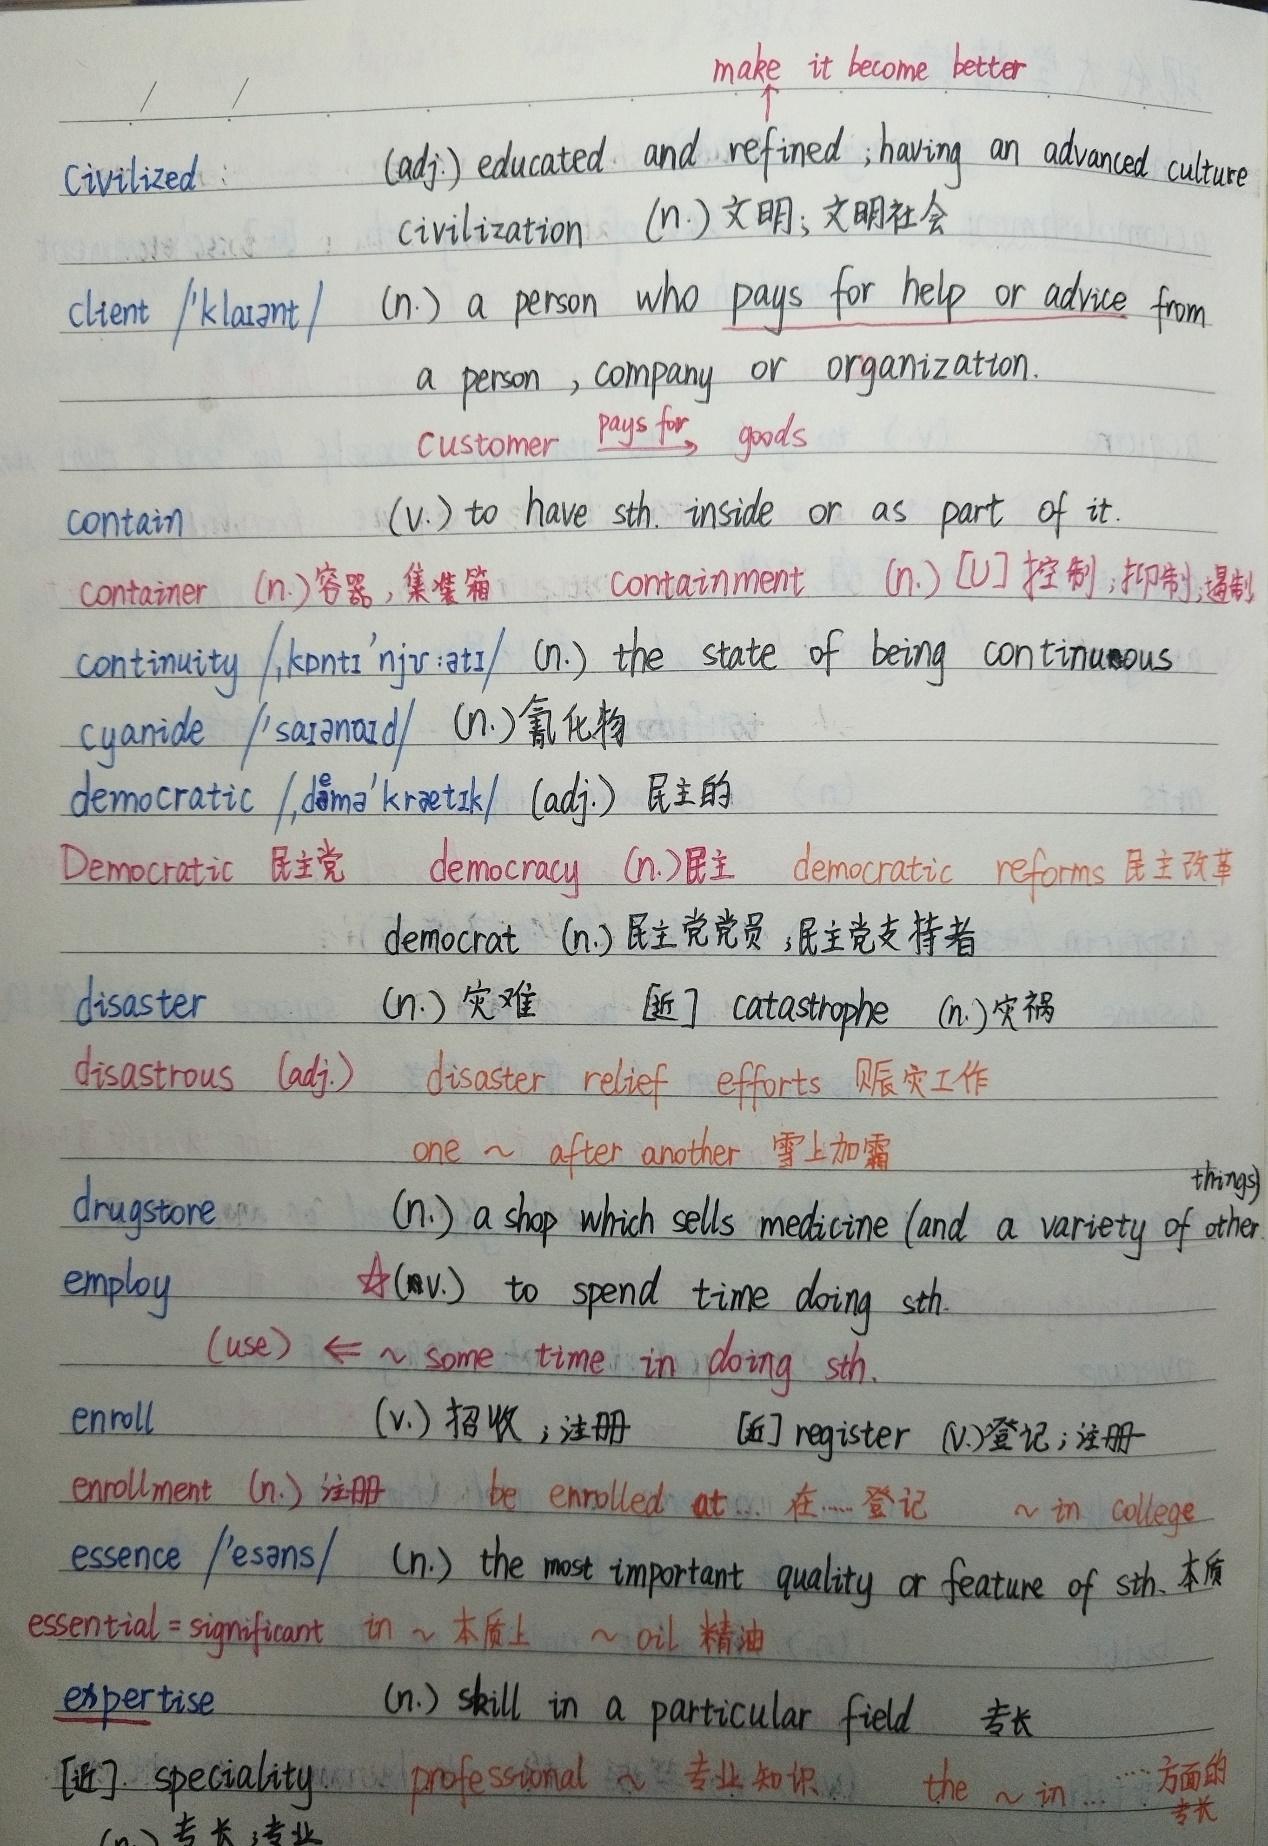 make it become better
civilized : (adj.) educated and refined ; having an advanced culture
civilization (n.) 文明; 文明社会
client /'klaɪənt/ (n.) a person who pays for help or advice from
a person , company or organization.
customer pays for goods
contain (v.) to have sth. inside or as part of it.
container (n.) 容器 , 集装箱 containment (n.) [U] 控制 ; 抑制 ; 遏制
continuity /,kɒntɪ'njʊ:ətɪ/ (n.) the state of being continuous
cyanide /'saɪənaɪd/ (n.) 氰化物
democratic /,demə'krætɪk/ (adj.) 民主的
Democratic 民主党 democracy (n.) 民主 democratic reforms 民主改革
democrat (n.) 民主党党员 ; 民主党支持者
disaster (n.) 灾难 [近] catastrophe (n.) 灾祸
disastrous (adj.) disaster relief efforts 赈灾工作
one ~ after another 雪上加霜
things)
drugstore (n.) a shop which sells medicine (and a variety of other
employ ☆ (v.) to spend time doing sth.
(use) ⇐ ~ some time in doing sth.
enroll (v.) 招收 ; 注册 [近] register (v.) 登记 ; 注册
enrollment (n.) 注册 be enrolled at ... 在...... 登记 ~ in college
essence /'esəns/ (n.) the most important quality or feature of sth. 本质
essential = significant in ~ 本质上 ~ oil 精油
expertise (n.) skill in a particular field 专长
[近] speciality professional ~ 专业知识 the ~ in ... ......方面的
专长
(n.) 专长 ; 专业